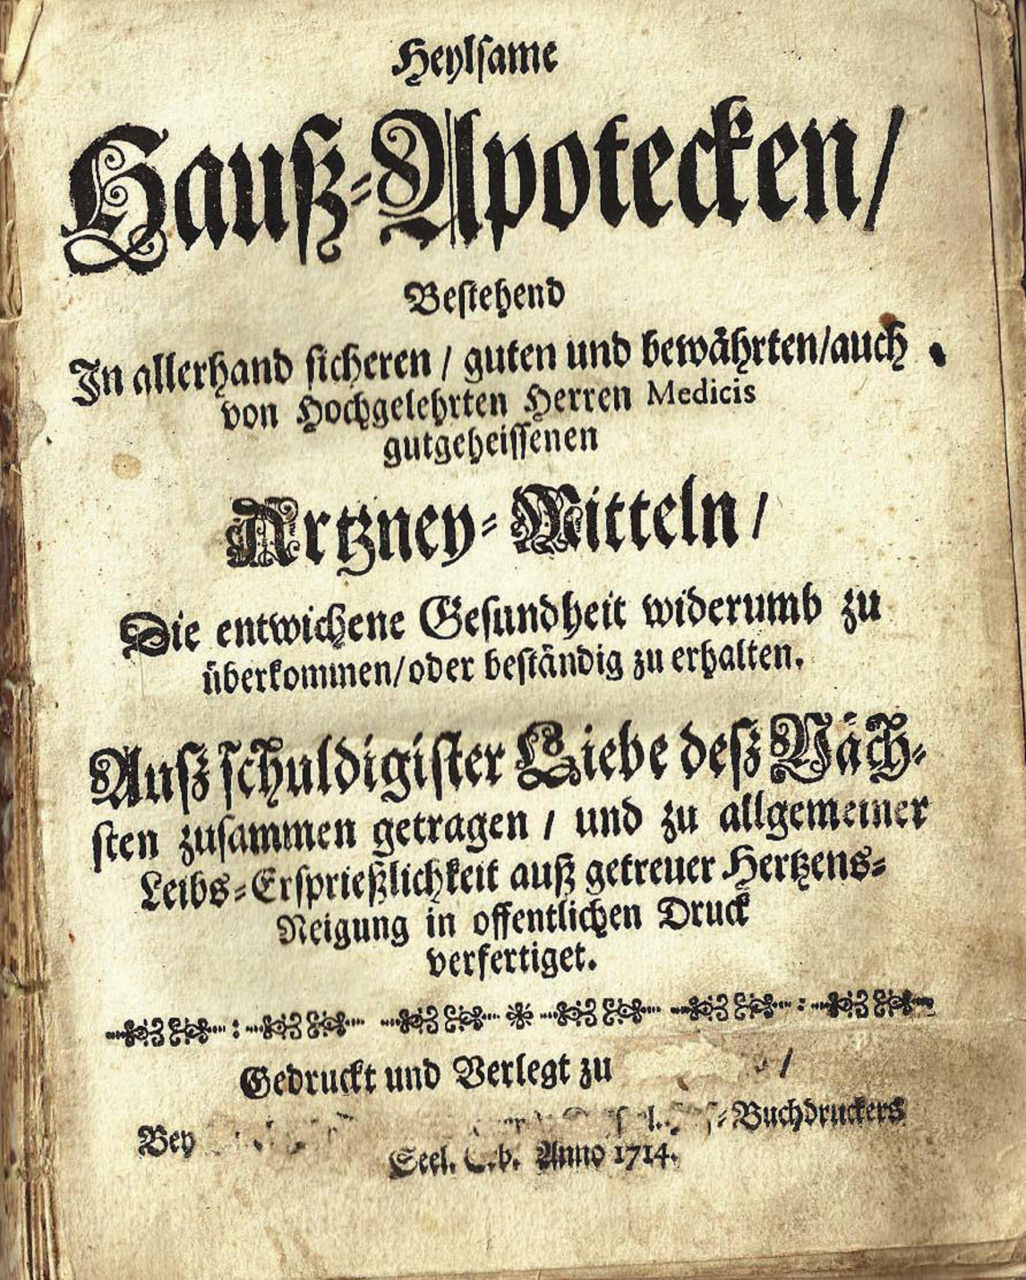 Heylsame
Hauß-Apotecken/
Bestehend
In allerhand sicheren / guten und bewährten/auch
von Hochgelehrten Herren Medicis
gutgeheissenen
Artzney-Mitteln /
Die entwichene Gesundheit widerumb zu
überkommen/oder beständig zu erhalten.
Auß schuldigister Liebe deß Näch-
sten zusammen getragen / und zu allgemeiner
Leibs-Ersprießlichkeit auß getreuer Hertzens-
Neigung in offentlichen Druck
verfertiget.
Gedruckt und Verlegt zu /
Bey -Buchdruckers
Seel. Anno 1714.